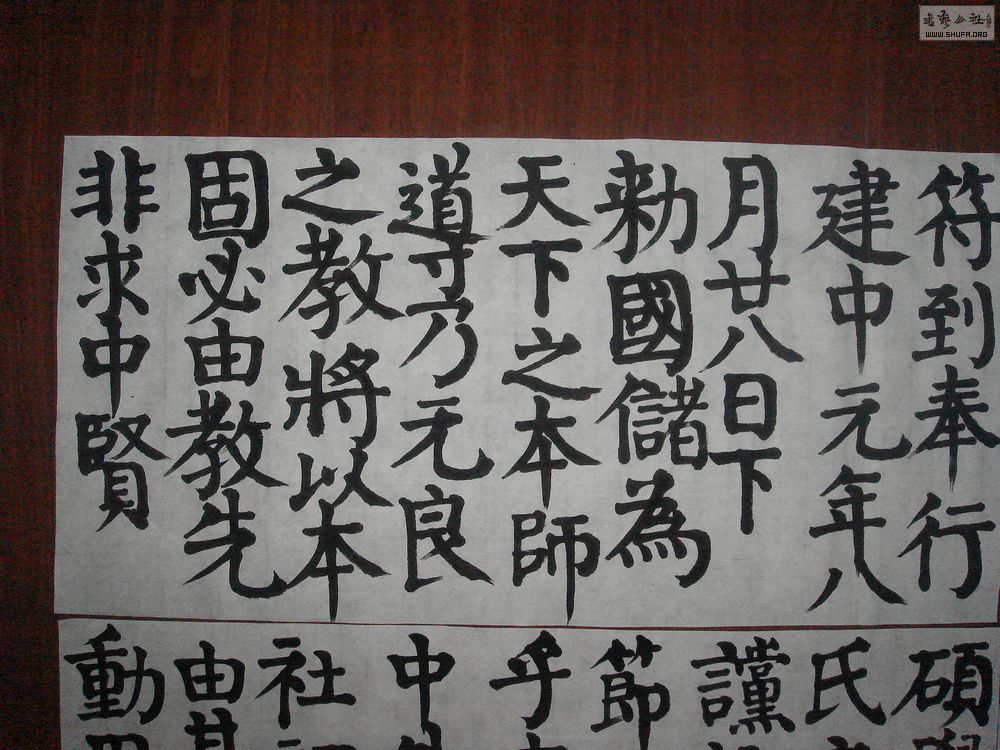 書藝公社
WWW.SHUFA.ORG
符到奉行
建中元年八
月廿八日下
勅國儲為
天下之本師
導乃元良
之教將以本
固必由教先
非求中賢
碩
氏
讜
節
乎
中
社
由其
動